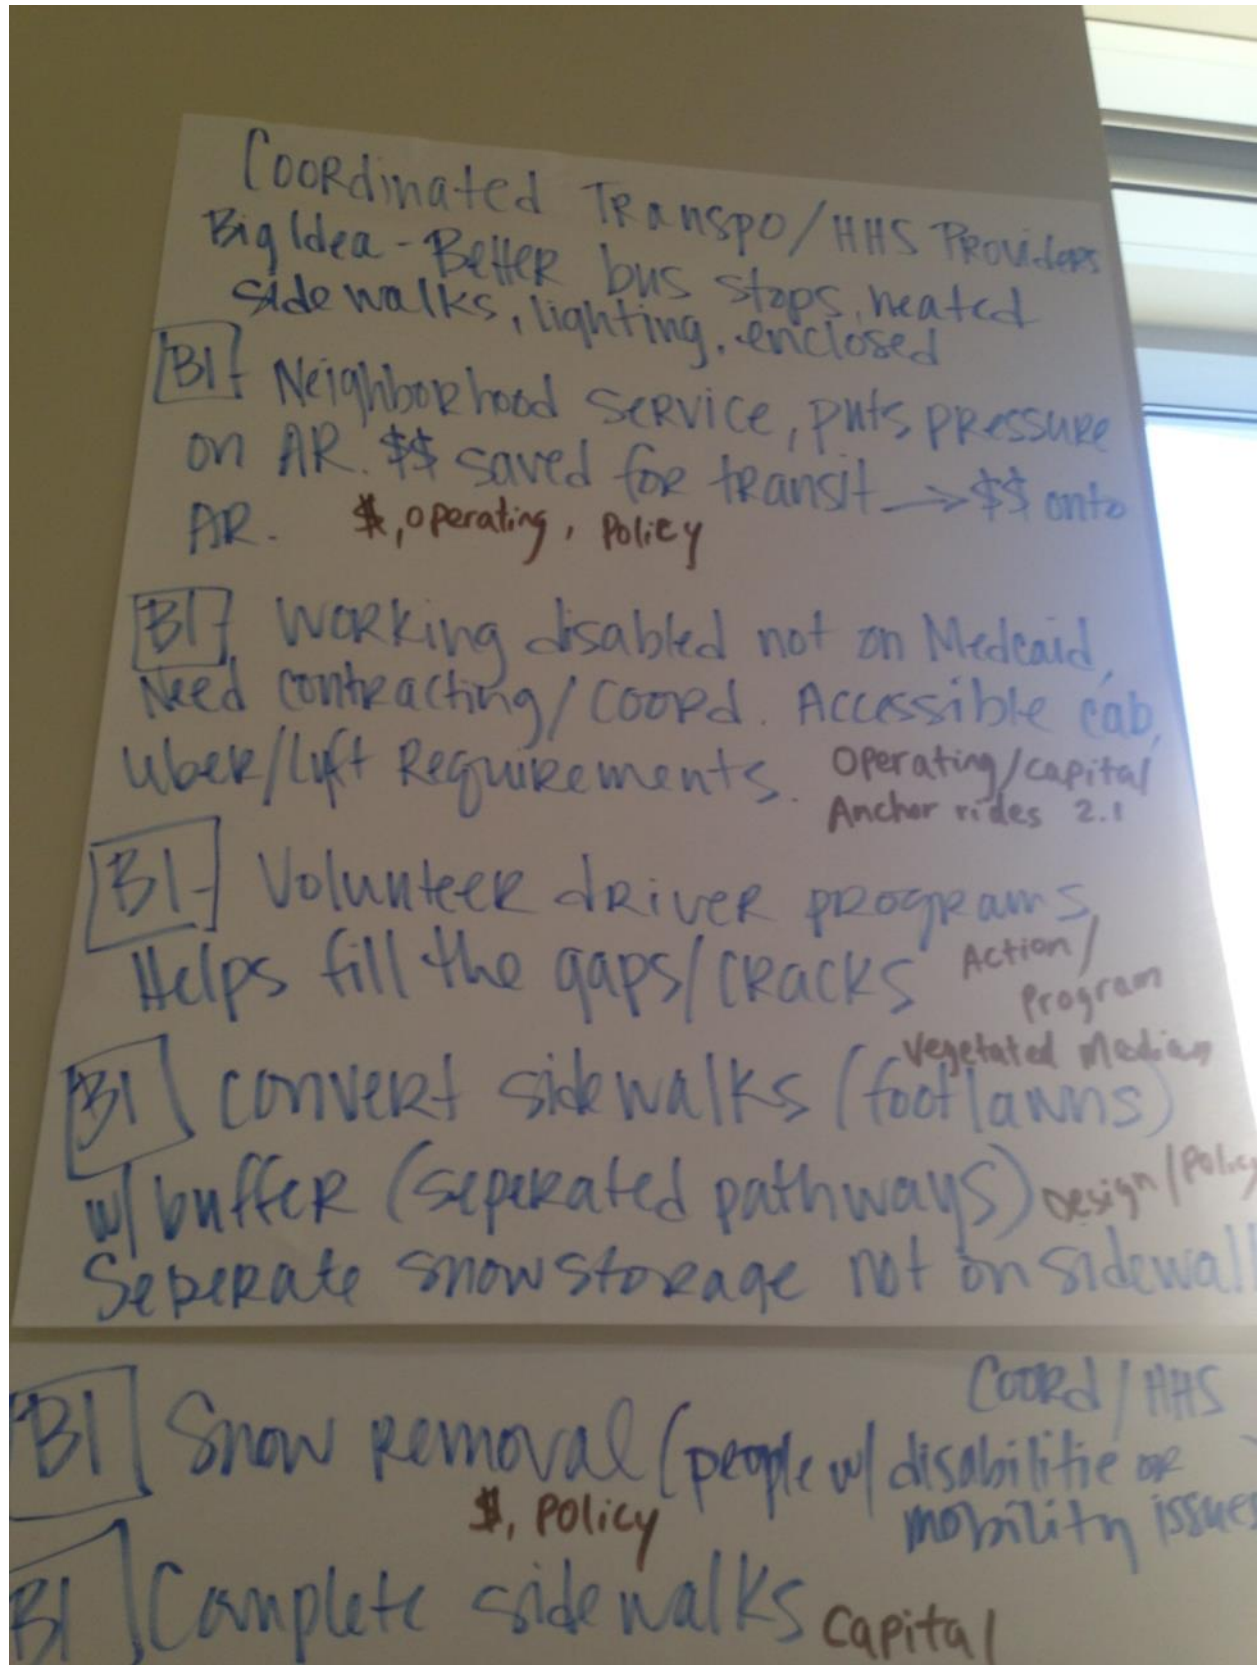 Coordinated Transpo/HHS Providers
Big Idea - Better bus stops, heated
sidewalks, lighting, enclosed
BI- Neighborhood service, puts pressure
on AR. $$ saved for transit → $$ onto
AR. $, operating, policy
BI- Working disabled not on Medcaid,
Need contracting/coord. Accessible cab,
Uber/Lyft Requirements. Operating/capital
Anchor rides 2.1
BI- Volunteer driver programs,
Helps fill the gaps/cracks Action/
Program
Vegetated Median
BI convert sidewalks (footlawns)
w/ buffer (seperated pathways) Design/Policy
Seperate snow storage not on sidewalk
Coord/HHS
BI Snow removal (people w/ disabilitie or
mobility issues)
$, Policy
BI Complete sidewalks Capital